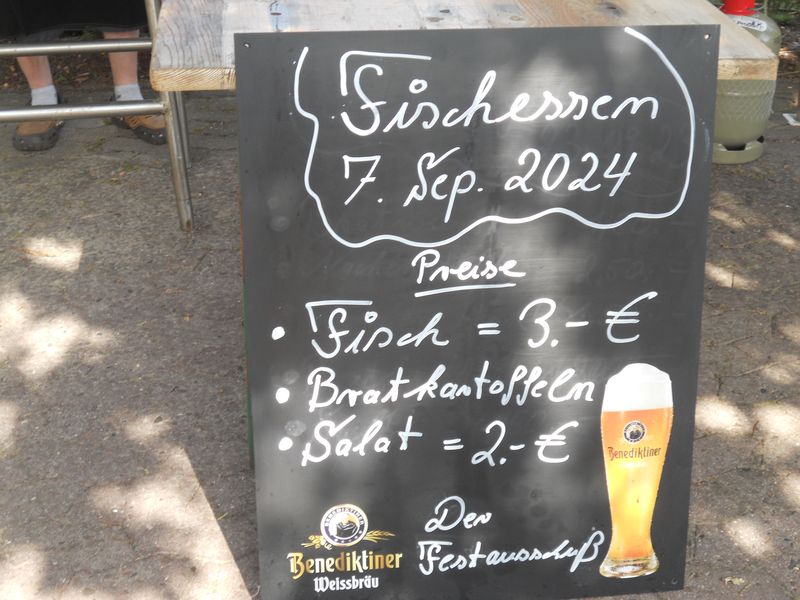 Fischessen
7. Sep. 2024
Preise
• Fisch = 3.- €
• Bratkartoffeln
• Salat = 2.- €
Benediktiner
Benediktiner
Weissbräu
Der
Festausschuß